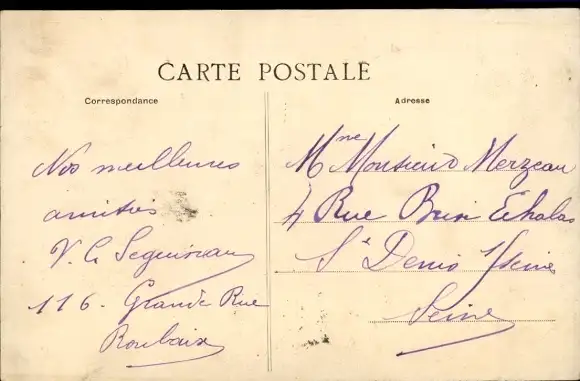 CARTE POSTALE
Correspondance
Nos meilleures
amitiés
V. C. Seguineau
116 - Grande Rue
Roubaix
Adresse
Mme Monsieur Merzeau
4 Rue Brise Echalas
St Denis s/ Seine
Seine